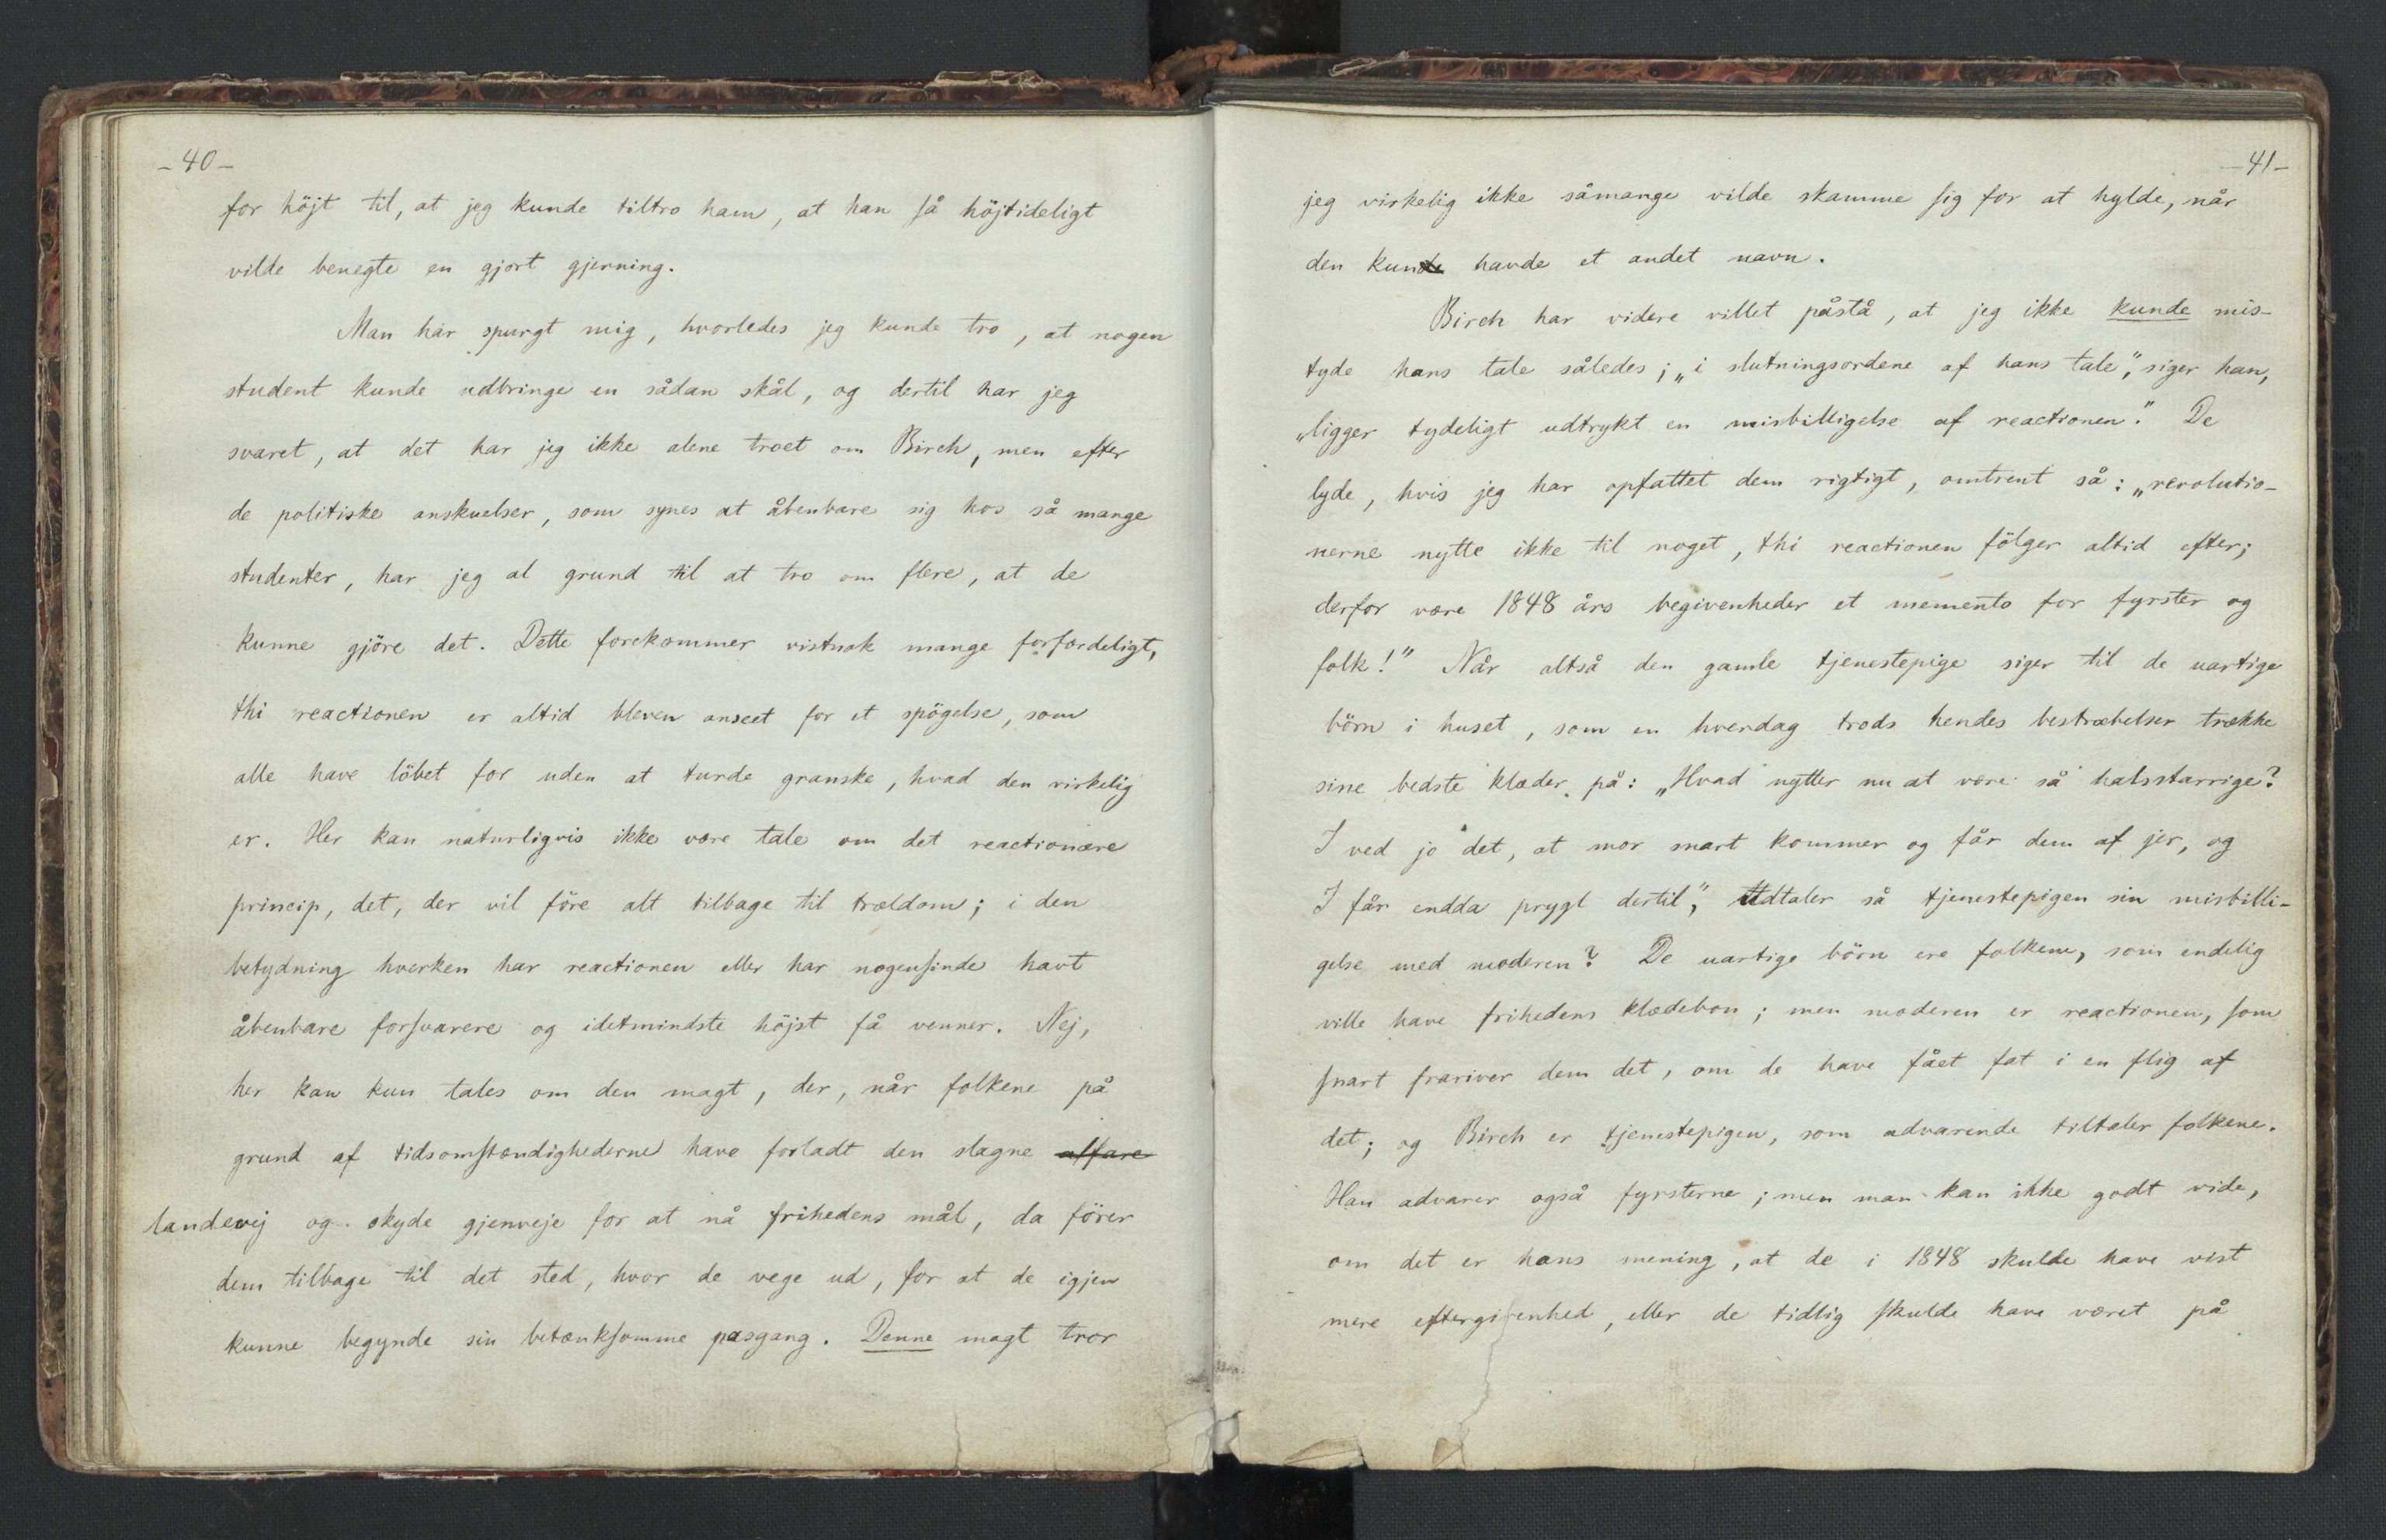 -40-
for höjt til, at jeg kunde tiltro ham, at han så höjtideligt
vilde benegte en gjort gjerning.
Man har spurgt mig, hvorledes jeg kunde tro, at nogen
student kunde udbringe en sådan skål, og dertil har jeg
svaret, at det har jeg ikke alene troet om Birch, men efter
de politiske anskuelser, som synes at åbenbare sig hos så mange
studenter, har jeg al grund til at tro om flere, at de
kunne gjöre det. Dette forekommer vistnok mange forfærdeligt,
thi reactionen er altid bleven anseet for et spögelse, som
alle have löbet for uden at turde granske, hvad den virkelig
er. Her kan naturligvis ikke være tale om det reactionære
princip, det, der vil före alt tilbage til trældom; i den
betydning hverken har reactionen eller har nogensinde havt
åbenbare forsvarere og idetmindste höjst få venner. Nej,
her kan kun tales om den magt, der, når folkene på
grund af tidsomstændighederne have forladt den slagne alfare
landevej og skyde gjenveje for at nå frihedens mål, da förer
dem tilbage til det sted, hvor de vege ud, for at de igjen
kunne begynde sin betænksomme pasgang. Denne magt tror
-41-
jeg virkelig ikke såmange vilde skamme sig for at hylde, når
den kunde havde et andet navn.
Birch har videre villet påstå, at jeg ikke kunde mis-
tyde hans tale således; „i slutningsordene af hans tale", siger han,
„ligger tydeligt udtrykt en misbilligelse af reactionen". De
lyde, hvis jeg har opfattet dem rigtigt, omtrent så: „revolutio-
nerne nytte ikke til noget, thi reactionen fölger altid efter;
derfor være 1848 års begivenheder et memento for fyrster og
folk!" Når altså den gamle tjenestepige siger til de uartige
börn i huset, som en hverdag trods hendes bestræbelser trække
sine bedste klæder på: „Hvad nytter nu at være så halsstarrige?
I ved jo det, at mor snart kommer og får dem af jer, og
I får endda prygl dertil", udtaler så tjenestepigen sin misbilli-
gelse med moderen? De uartige börn ere folkene, som endelig
ville have frihedens klædebon; men moderen er reactionen, som
snart frariver dem det, om de have fået fat i en flig af
det; og Birch er tjenestepigen, som advarende tiltaler folkene.
Han advarer også fyrsterne; men man kan ikke godt vide,
om det er hans mening, at de i 1848 skulde have vist
mere eftergivenhed, eller de tidlig skulde have været på